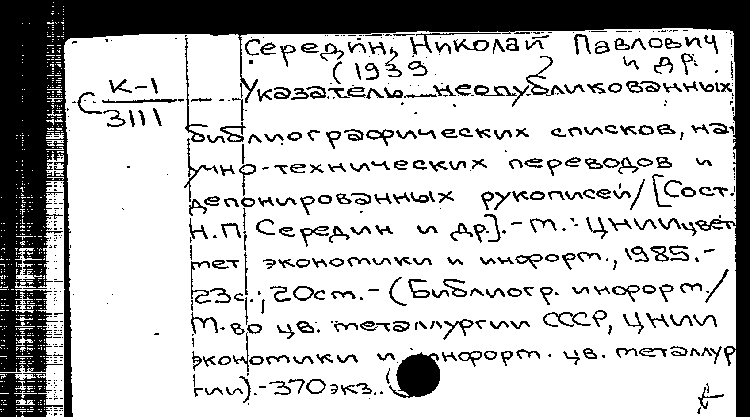 Середин, Николай Павлович
(1939 ) и др.
С К-1
3111
Указатель неопубликованных
библиографических списков, на-
учно-технических переводов и
депонированных рукописей/ [Сост.
Н.П. Середин и др.].-М.: ЦНИИцвет
мет экономики и информ., 1985.-
23с.; 20см.- (Библиогр. информ./
М-во цв. металлургии СССР, ЦНИИ
экономики и информ. цв. металлур
гии).-370экз.